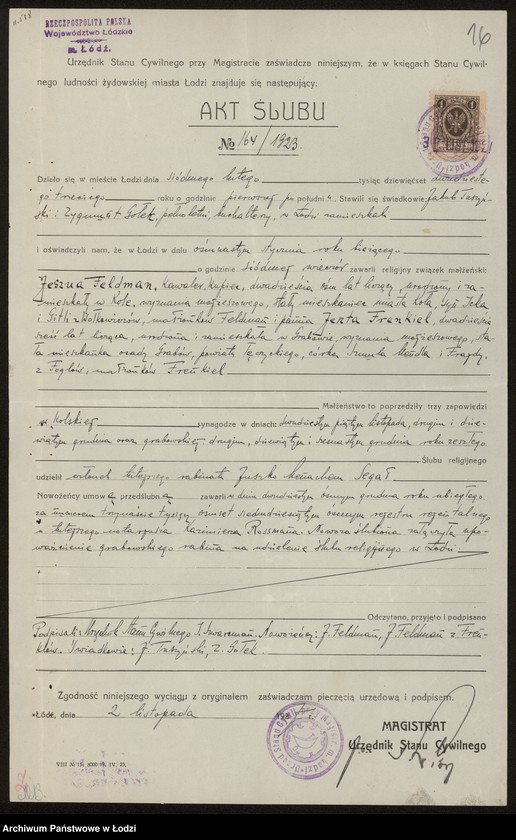 RZECZPOSPOLITA POLSKA
Województwo Łódzkie
m. Łódź.
16
Urzędnik Stanu Cywilnego przy Magistracie zaświadcza niniejszym, że w księgach Stanu Cywil-
nego ludności żydowskiej miasta Łodzi znajduje się następujący:
AKT ŚLUBU
№ 164/1923.
Działo się w mieście Łodzi dnia siódmego lutego tysiąc dziewięćset dwudzieste-
go trzeciego roku o godzinie pierwszej po południu. Stawili się świadkowie Jakub
i Zygmunt Gołek, pełnoletni, buchalterzy, w Łodzi zamieszkali
i oświadczyli nam, że w Łodzi w dniu osiemnastym stycznia roku bieżącego
o godzinie siódmej wieczór zawarli religijny związek małżeński:
Jeszua Feldman, kawaler, kupiec, dwadzieścia osm lat liczący, urodzony i za-
mieszkały w Kole, wyznania mojżeszowego, stały mieszkaniec miasta Koła, syn Icka
i Gitli z Wołkowiczów, małżonków Feldman i panna Jenta Frenkiel, dwadzieścia
sześć lat licząca, urodzona i zamieszkała w Grabowie, wyznania mojżeszowego, sta-
ła mieszkanka osady Grabów, powiatu Łęczyckiego, córka Szmula Majdla i Frajdy,
z małżonków Frenkiel
Małżeństwo to poprzedziły trzy zapowiedzi
w Kolskiej synagodze w dniach: dwudziestym piątym listopada, drugim i dzie-
wiątym grudnia oraz grabowskiej drugim, dziewiątym i szesnastym grudnia roku zeszłego
Ślubu religijnego
udzielił członek tutejszego rabinatu Menachem Segał
Nowożeńcy umowę przedślubną zawarli w dniu dwudziestym ósmym grudnia roku ubiegłego
za numerem trzynaście tysięcy osiemset siedemdziesiątym ósmym rejestru
tutejszego notarjusza Kazimierza Rossmana. Nowozaślubiona załączyła upo-
ważnienie grabowskiego rabina na udzielenie ślubu religijnego w Łodzi
Odczytano, przyjęto i podpisano
Podpisali: Urzędnik Stanu Cywilnego Nowożeńcy: J. Feldman, J. Feldman z Fren-
klów. Świadkowie: J. Z. Gołek.
Zgodność niniejszego wyciągu z oryginałem zaświadczam pieczęcią urzędową i podpisem.
Łódź, dnia 2 listopada
MAGISTRAT
Urzędnik Stanu Cywilnego
Archiwum Państwowe w Łodzi